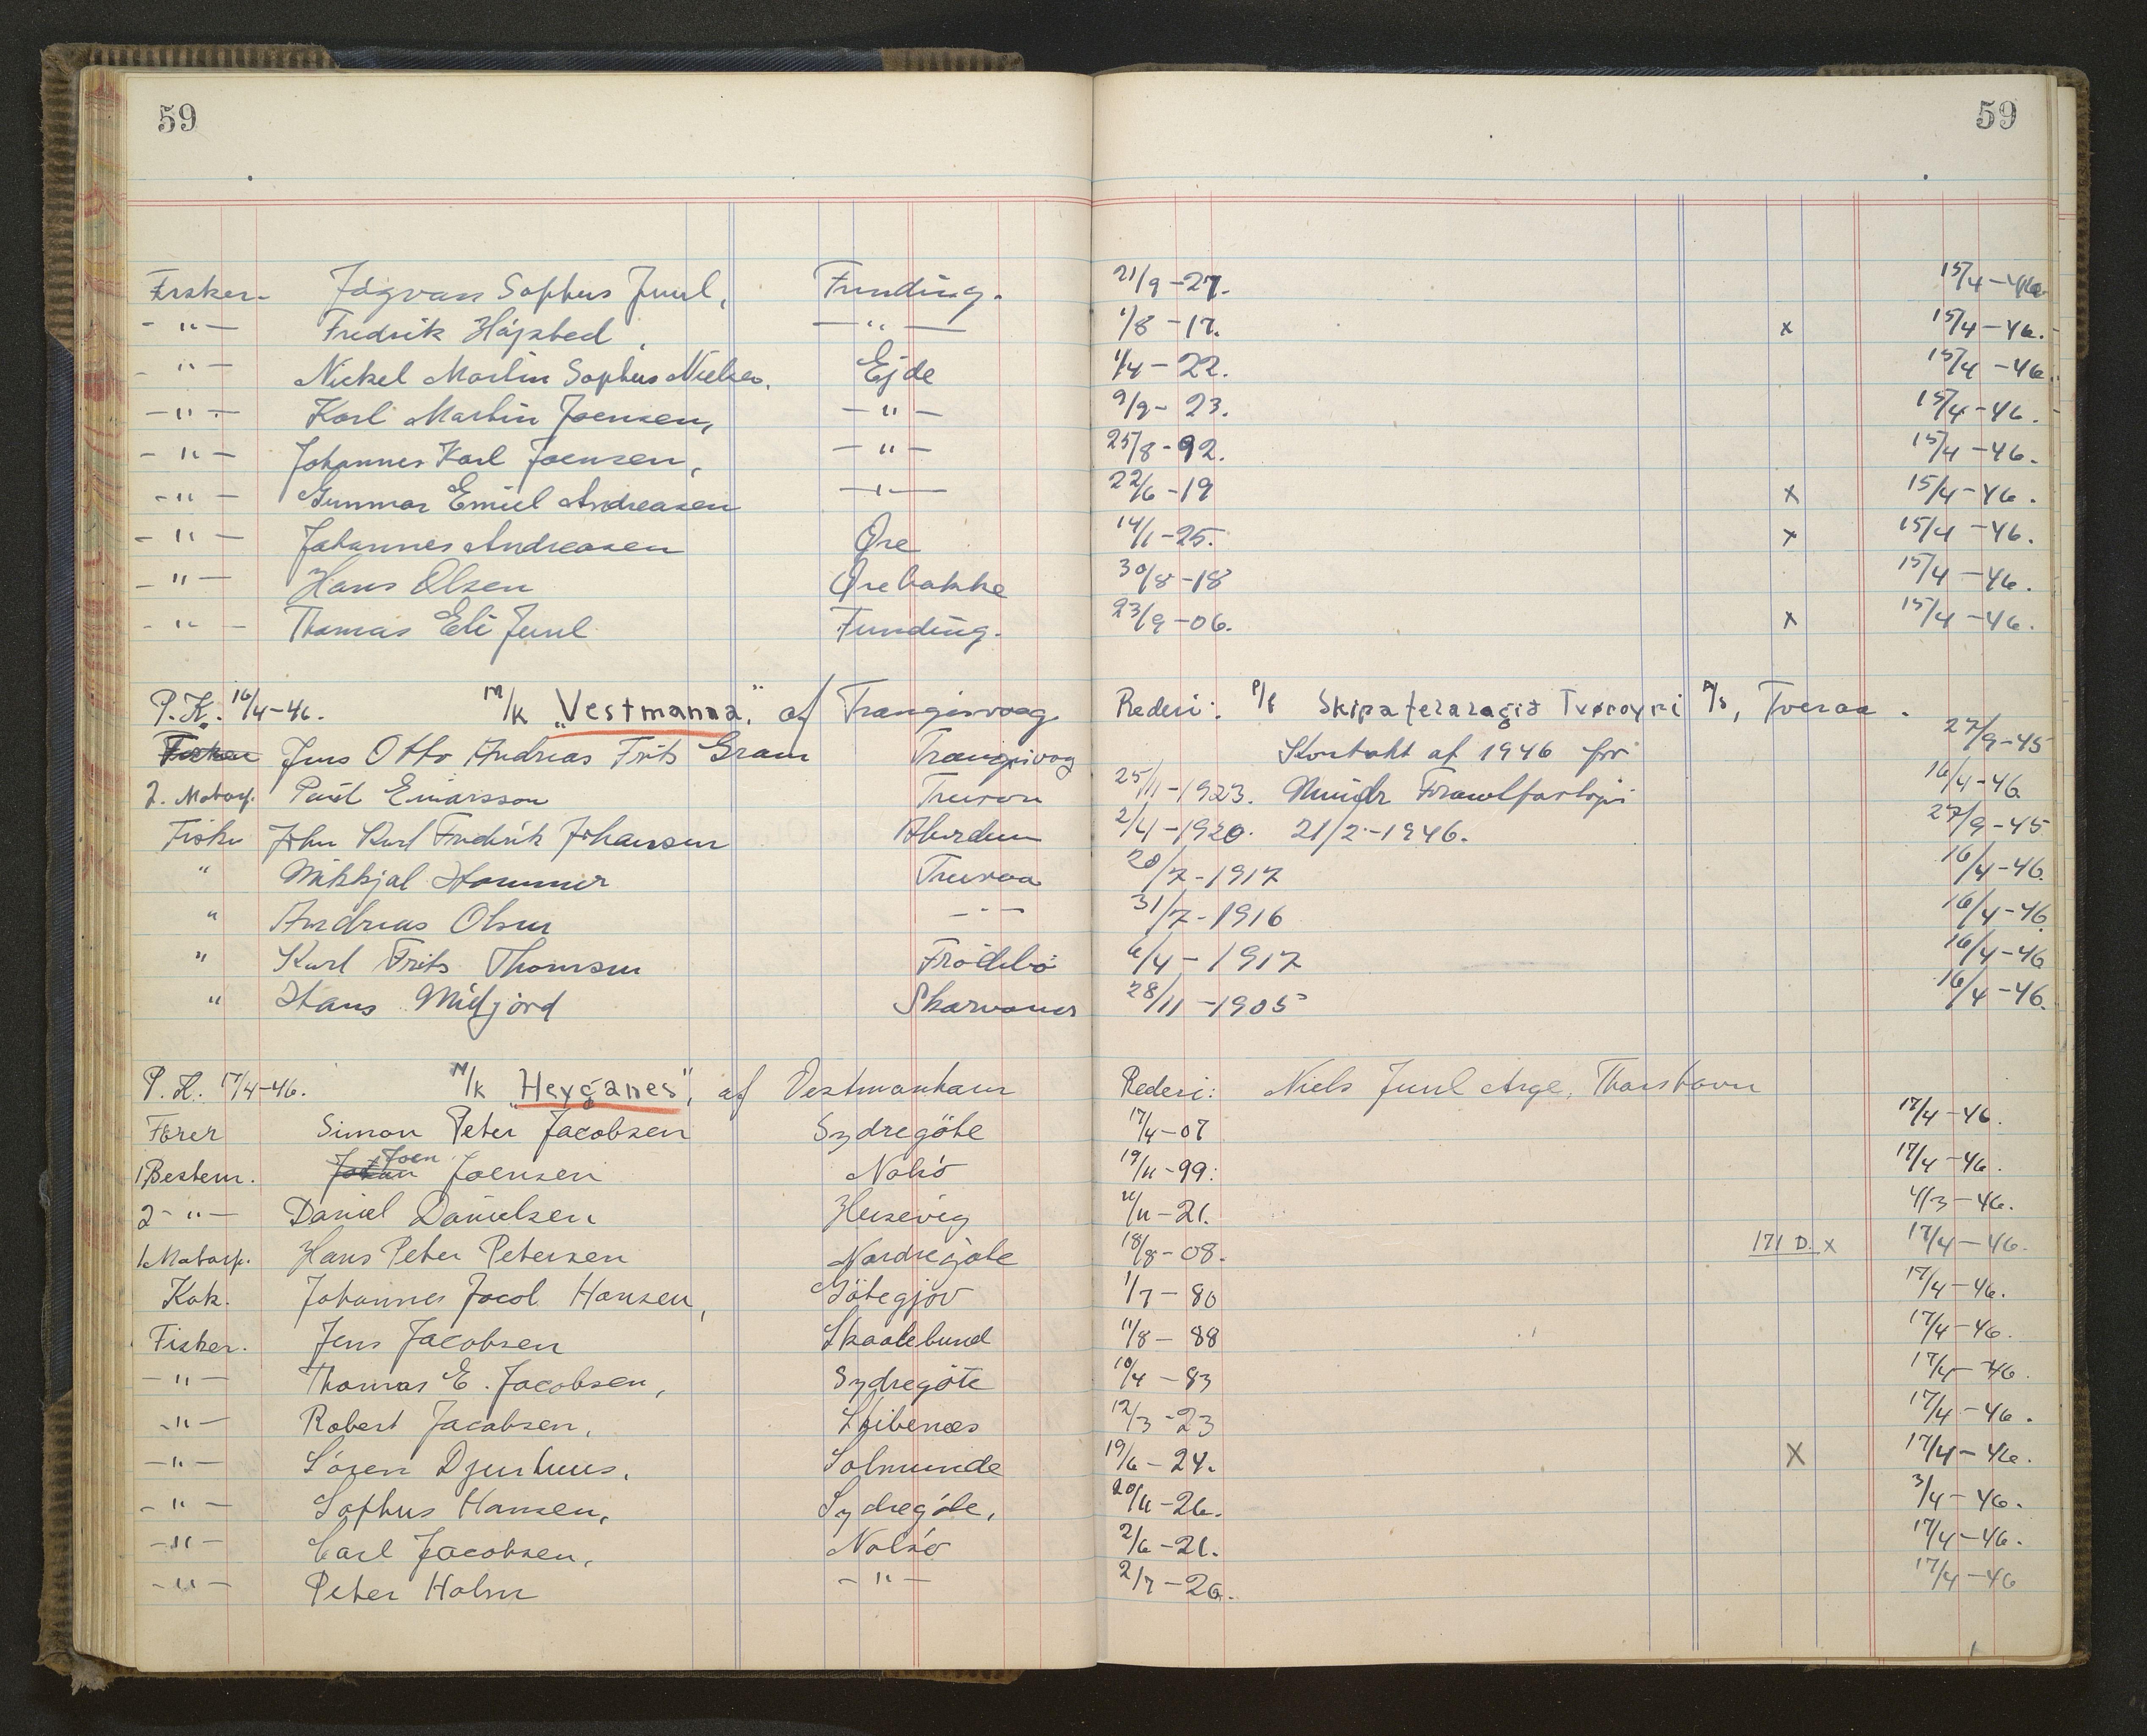 59 59
Fisker- Jógvan Sophus Juul, Funding. 21/9-27. 15/4-46.
-"- Fredrik Højsted, -"- 1/8-17. x 15/4-46.
-"- Nickel Martin Sophus Nielsen. Ejde 1/4-22. 15/4-46.
-"- Karl Martin Joensen, -"- 9/9-23. 15/4-46.
-"- Johannes Karl Joensen, -"- 25/8-92. 15/4-46.
-"- Gunnar Emiel Andreasen -"- 22/6-19 x 15/4-46.
-"- Johannes Andreasen Øre 14/1-25. x 15/4-46.
-"- Hans Olsen Ørebakke 30/8-18 15/4-46.
-"- Thomas Eli Juul Funding. 23/9-06. x 15/4-46.
P.K. 16/4-46. M/k "Vestmanna", af Trangisvaag Rederi: P/f Skipafelagið Tvøroyri A/S, Tveraa.
Fisker Jens Otto Andreas Frits Gram Trangisvaag Kontakt af 1946 for 27/9-45
2. Motorp. Paul Einarsson Tveraa 25/11-1923. 16/4-46
Fisker John Karl Fredrik Johansen Aberdeen 2/4-1920. 21/2-1946. 27/9-45
" Mikkjal Hammer Tveraa 20/7-1917 16/4-46.
" Andreas Olsen -"- 31/7-1916 16/4-46
" Karl Frits Thomsen Frodebö 6/4-1917 16/4-46
" Hans Midjord Skarvanes 28/11-1905 16/4-46.
P.K. 17/4-46. M/k "Heyganes", af Vestmanhavn Rederi: Niels Juul Arge, Thorshavn
Fører Simon Peter Jacobsen Sydregöte 17/4-07 17/4-46.
1 Bestm. Johan Joen Joensen Nolsö 19/11-99. 17/4-46.
2-"- Daniel Danielsen Husevig 26/11-21. 4/3-46.
1. Motorp. Hans Peter Petersen Nordregøte 18/8-08. 171 D. x 17/4-46.
Kok. Johannes Jacob Hansen, Götegjov 1/7-80 17/4-46.
Fisker. Jens Jacobsen Skaalebund 11/8-88 17/4-46.
-"- Thomas E. Jacobsen, Sydregöte 10/4-83 17/4-46.
-"- Robert Jacobsen, Skibenæs 12/3-23 17/4-46.
-"- Sören Djurhuus, Solmunde 19/6-24. X 17/4-46.
-"- Sophus Hansen, Sydregøte, 20/11-26. 3/4-46.
-"- Carl Jacobsen, Nolsö 2/6-21. 17/4-46.
-"- Peter Holm -"- 2/7-26. 17/4-46